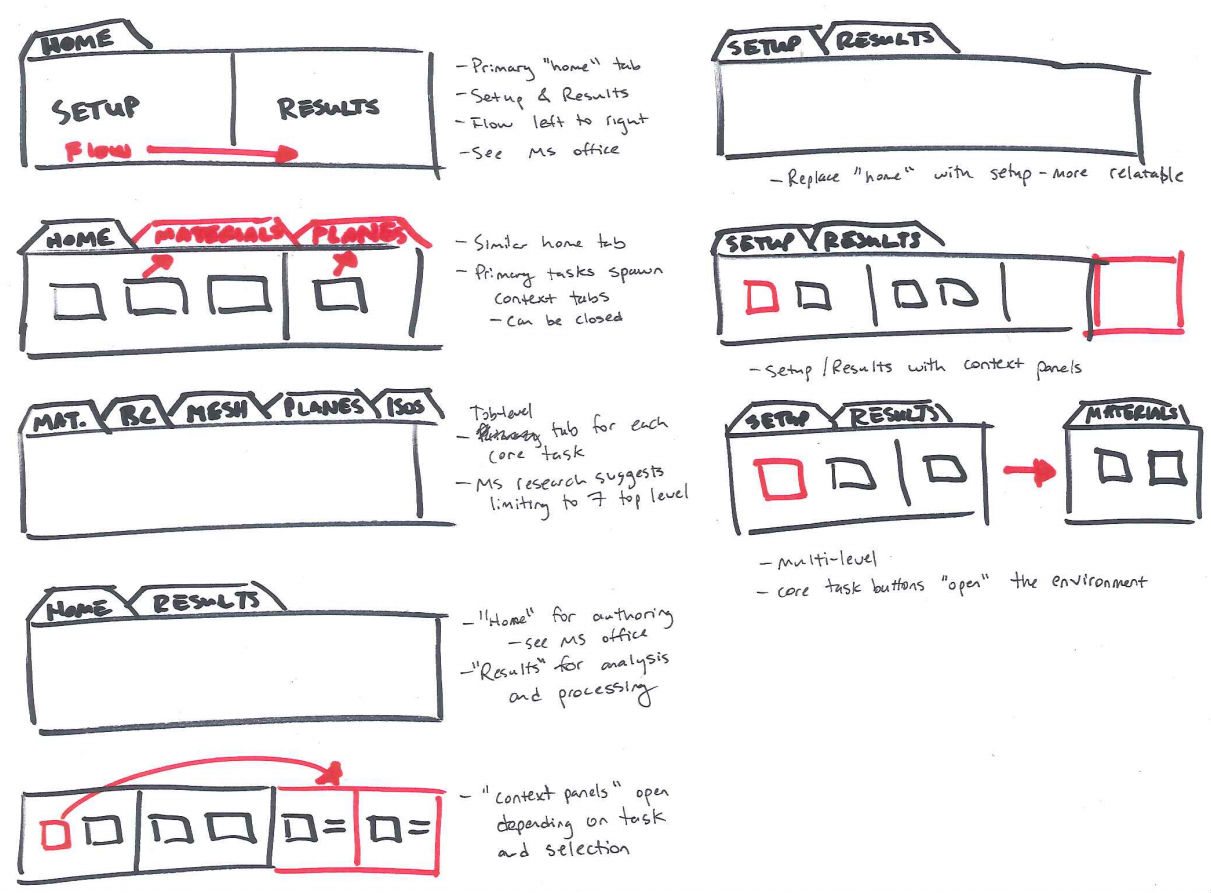 HOME
SETUP
RESULTS
FLOW
- Primary "home" tab
- Setup & Results
- Flow left to right
- See MS office
HOME
MATERIALS
PLANES
- Similar home tab
- Primary tasks spawn
context tabs
- Can be closed
MAT.
BC
MESH
PLANES
ISOS
Top-level
- tab for each
core task
- MS research suggests
limiting to 7 top level
HOME
RESULTS
- "Home" for authoring
- see MS office
- "Results" for analysis
and processing
- "context panels" open
depending on task
and selection
SETUP
RESULTS
- Replace "home" with setup - more relatable
SETUP
RESULTS
- Setup/Results with context panels
SETUP
RESULTS
MATERIALS
- multi-level
- core task buttons "open" the environment